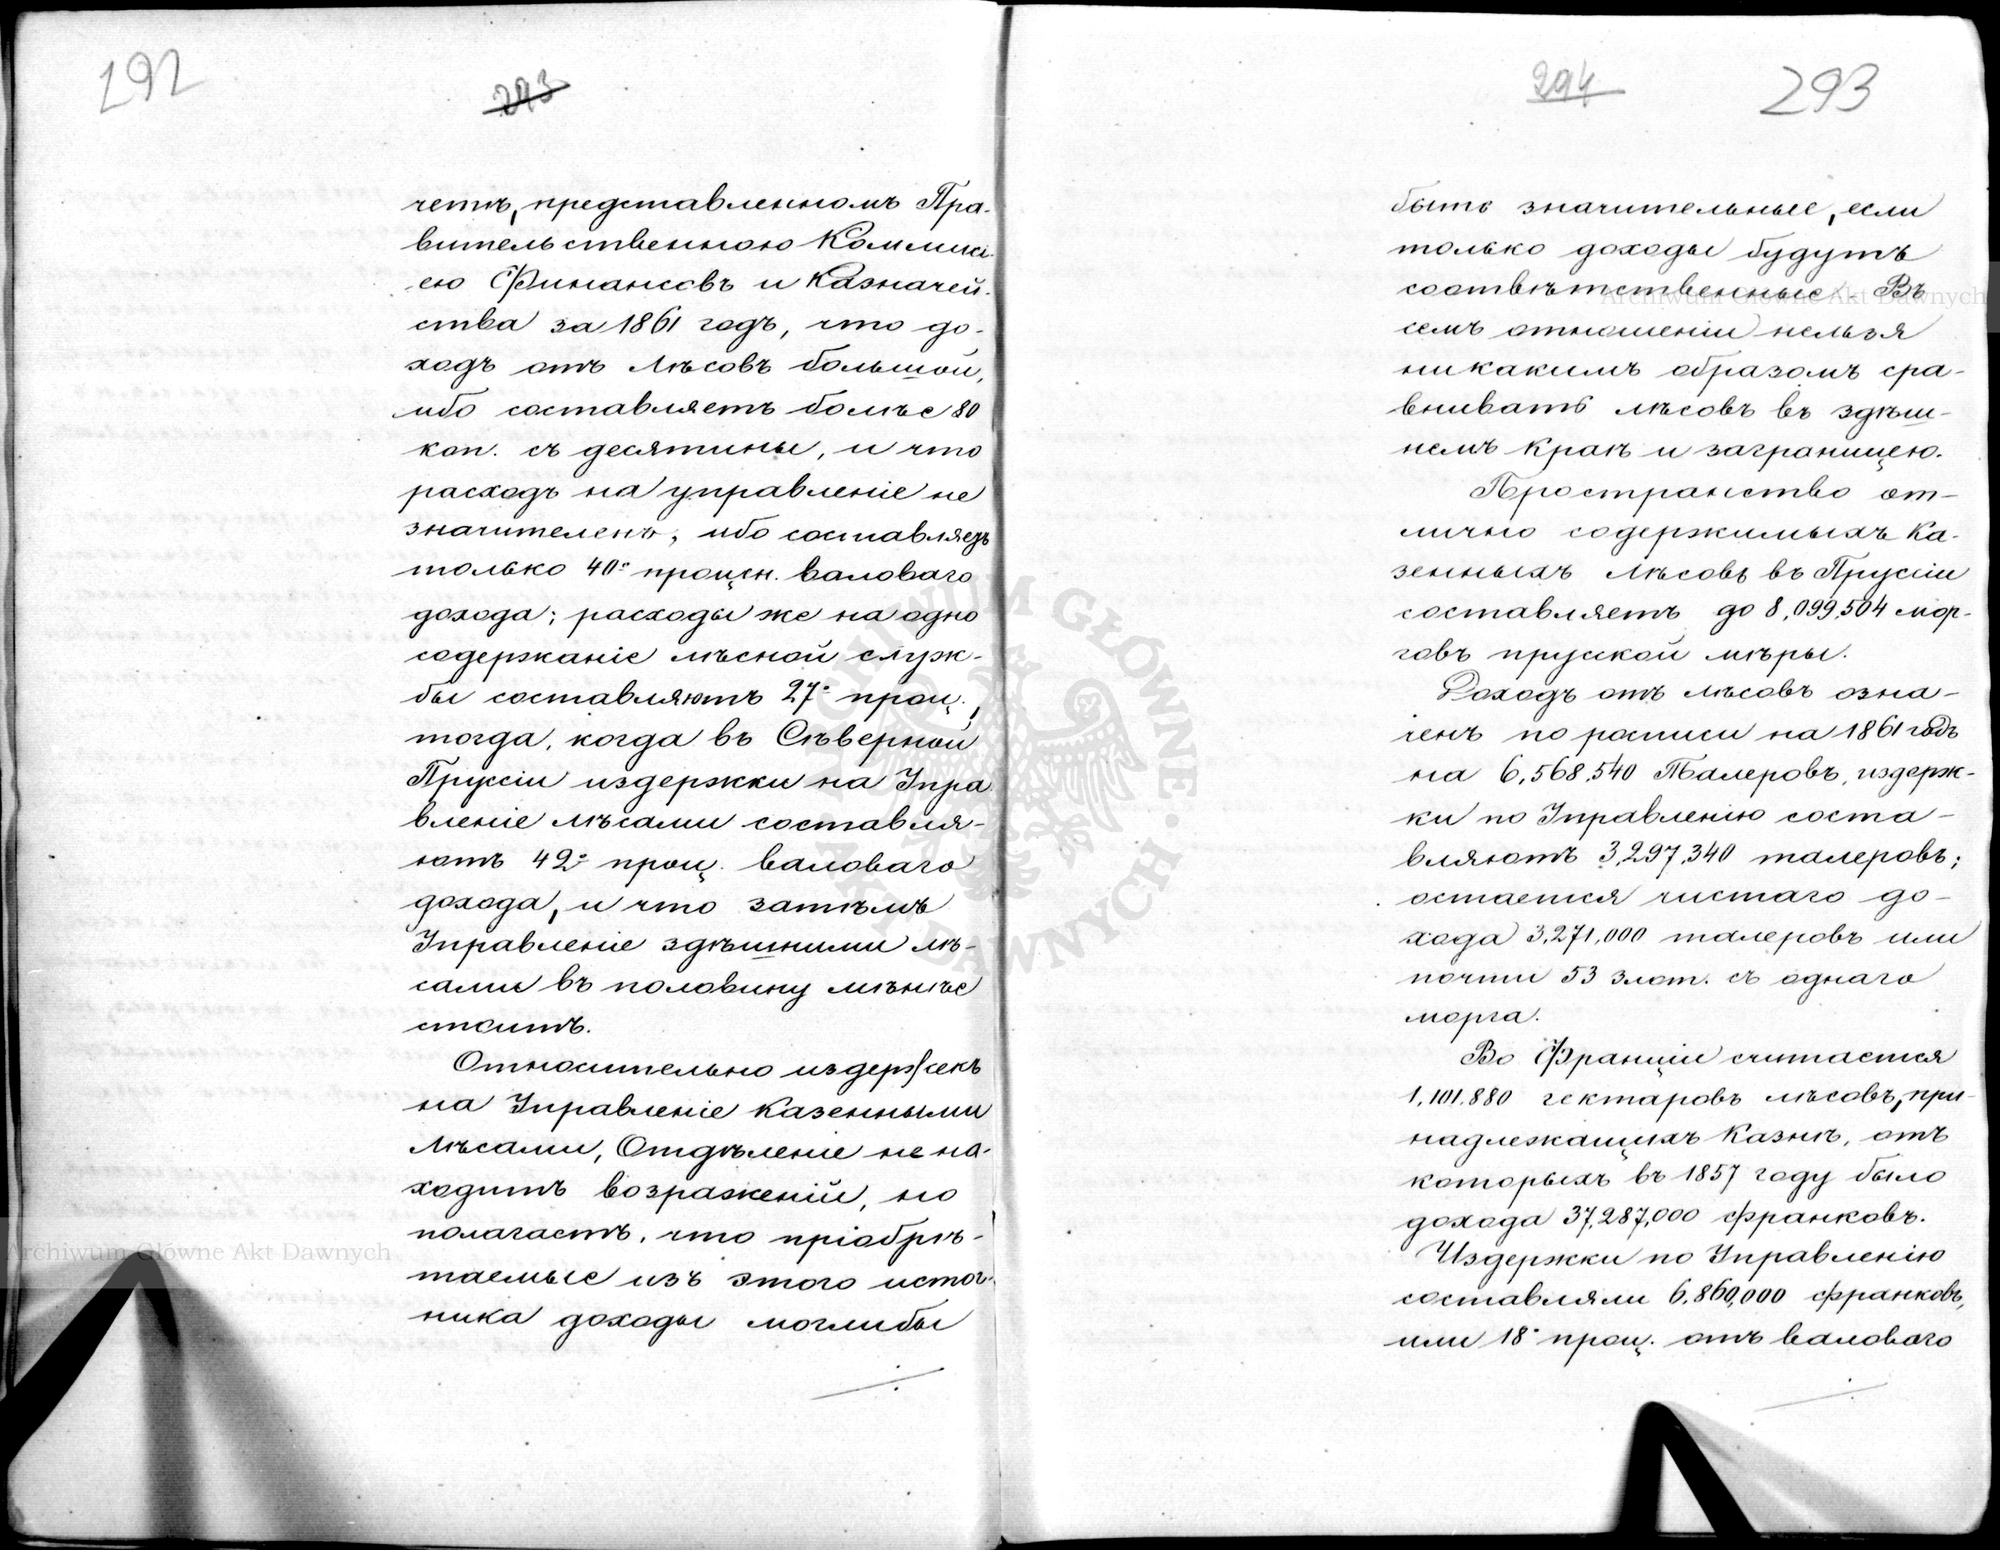 292
293
четѣ, представленномъ Пра-
вительственною Коммиссі-
ею Финансовъ и Казначей-
ства за 1861 годъ, что до-
ходъ отъ лѣсовъ большой,
ибо составляетъ болѣе 80
коп. съ десятины, и что
расходъ на управленіе не
значителенъ, ибо составляетъ
только 40% процен. валоваго
дохода; расходы же на одно
содержаніе лѣсной служ-
бы составляютъ 27% проц.,
тогда, когда въ Сѣверной
Пруссіи издержки на Упра-
вленіе лѣсами составля-
ютъ 42% проц. валоваго
дохода, и что затѣмъ
Управленіе здѣшними лѣ-
сами въ половину менѣе
стоитъ.
Относительно издержекъ
на Управленіе казенными
лѣсами, Отдѣленіе не на-
ходитъ возраженій, но
полагаетъ, что пріобрѣ-
таемые изъ этого источ-
ника доходы моглибы
294
293
быть значительные, если
только доходы будутъ
соотвѣтственные. Въ
семъ отношеніи нельзя
никакимъ образомъ сра-
внивать лѣсовъ въ здѣш-
немъ краѣ и заграницею.
Пространство от-
лично содержимыхъ Ка-
зенныхъ лѣсовъ въ Пруссіи
составляетъ до 8,099,504 мор-
говъ прусской мѣры.
Доходъ отъ лѣсовъ озна-
ченъ по росписи на 1861 годъ
на 6,568,540 Талеровъ, издерж-
ки по Управленію соста-
вляютъ 3,297,340 талеровъ;
остается чистаго до-
хода 3,271,000 талеровъ или
почти 53 злот. съ однаго
морга.
Во Франціи считается
1,101,880 гектаровъ лѣсовъ, при-
надлежащихъ Казнѣ, отъ
которыхъ въ 1857 году было
дохода 37,287,000 франковъ.
Издержки по Управленію
составляли 6,860,000 франковъ,
или 18% проц. отъ валоваго
Archiwum Główne Akt Dawnych
Archiwum Główne Akt Dawnych
ARCHIWUM GŁÓWNE AKT DAWNYCH